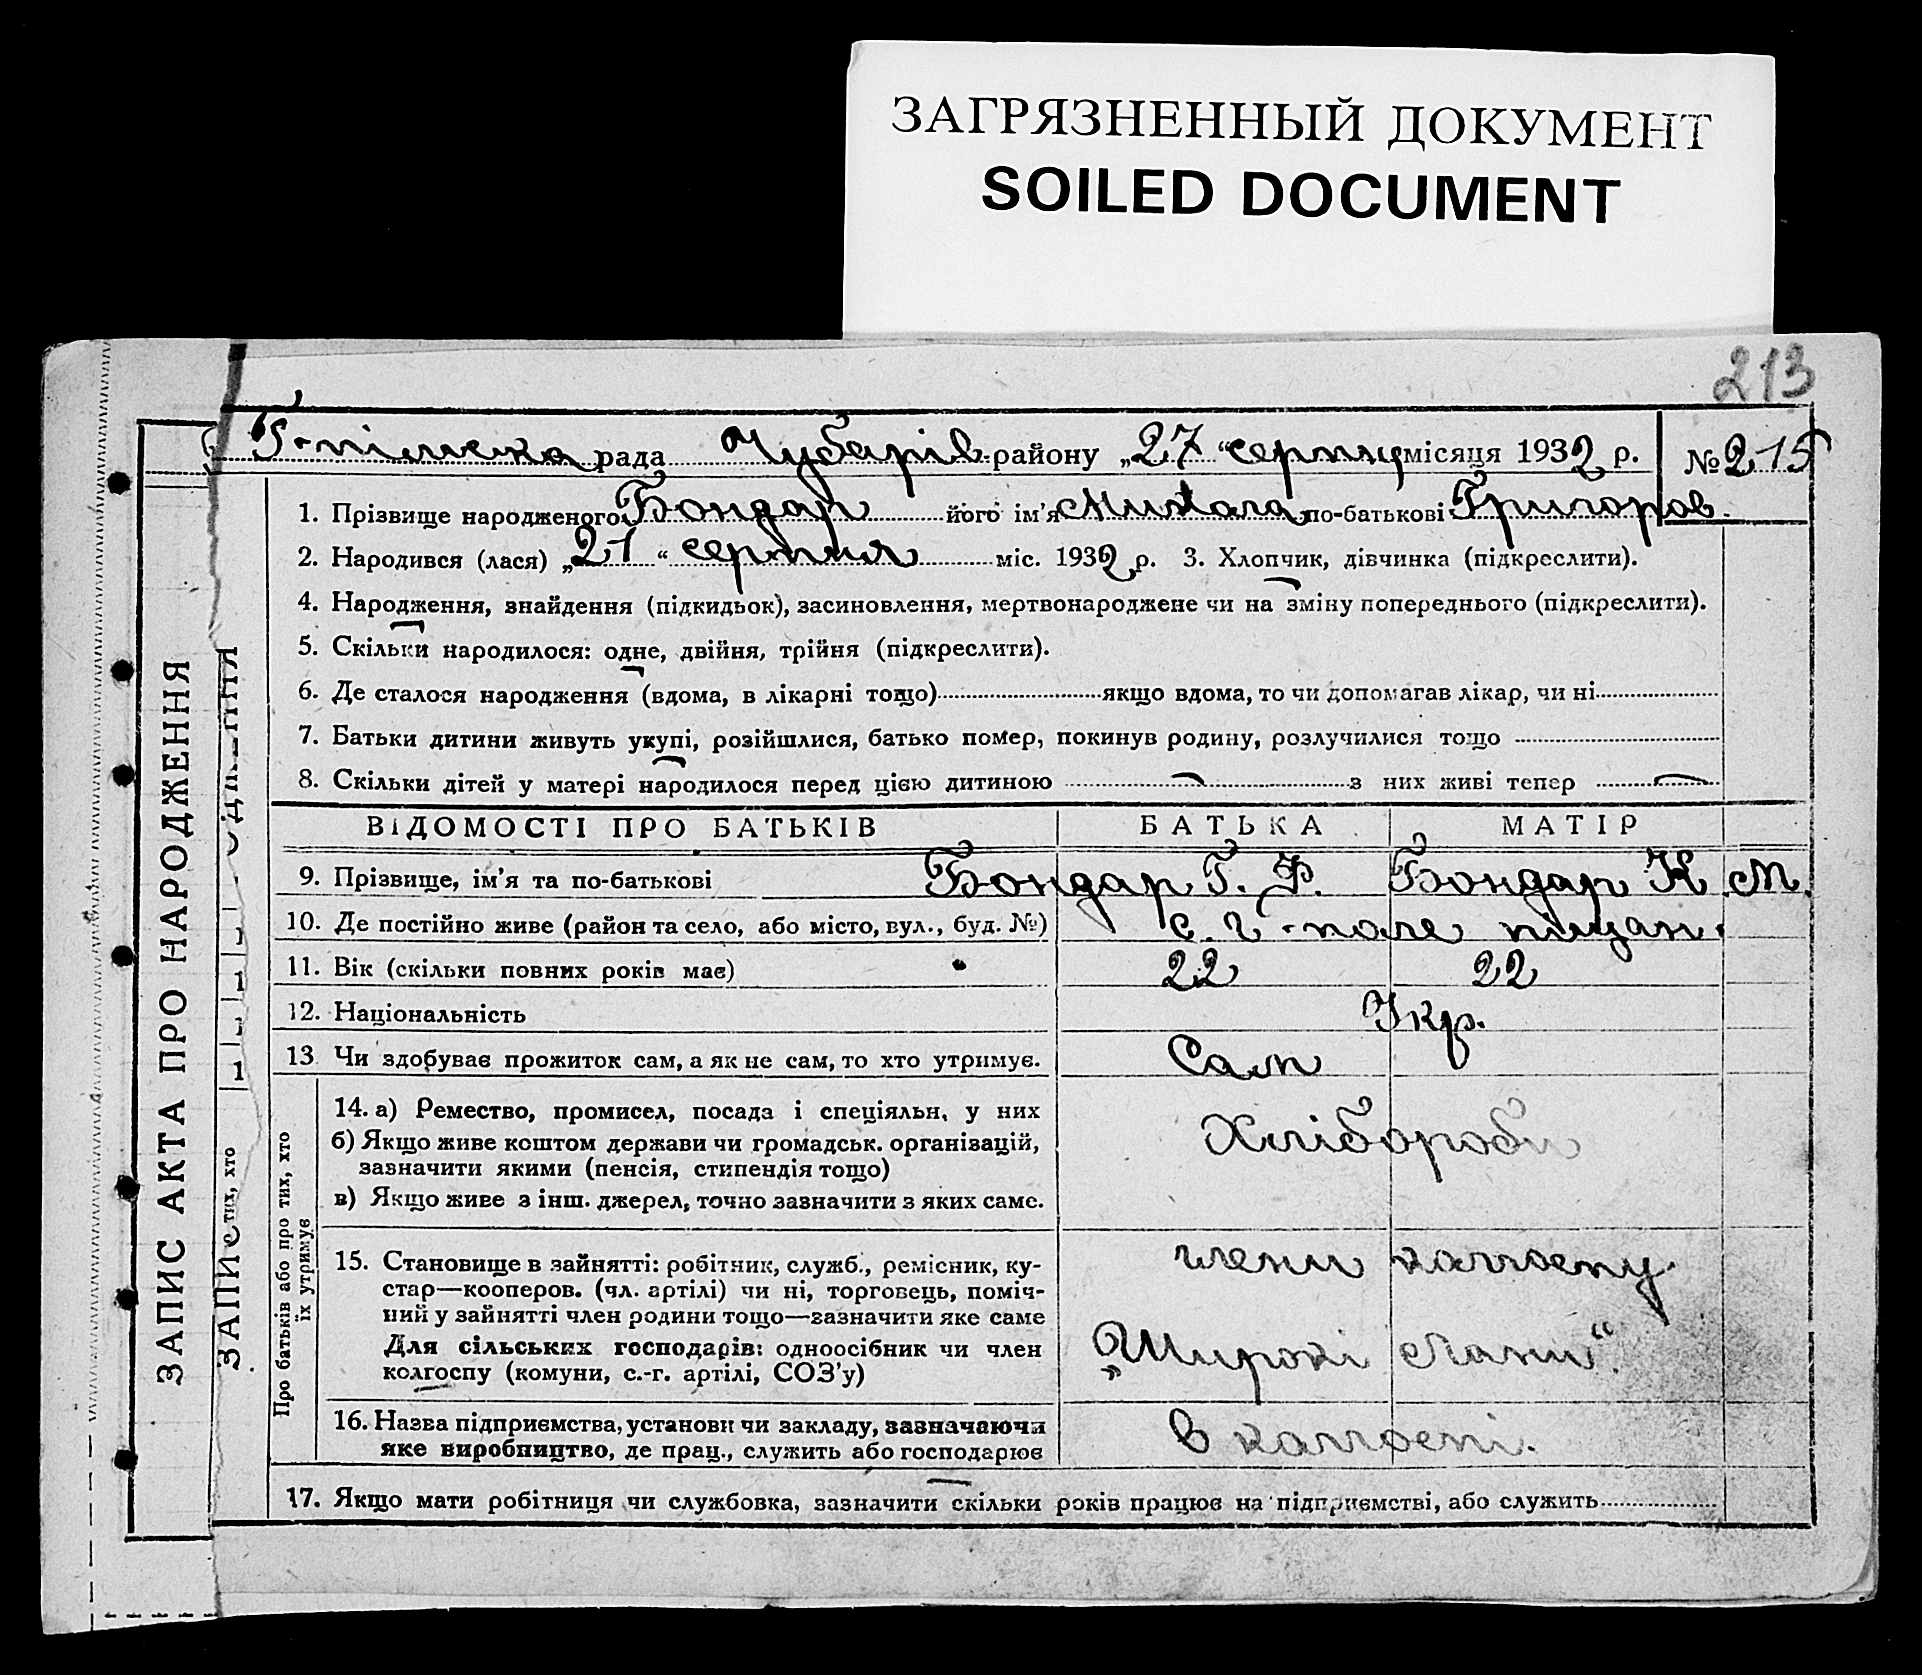 ЗАГРЯЗНЕННЫЙ ДОКУМЕНТ
SOILED DOCUMENT
213
Г-пільська рада Чубарів. району „27“ серпня місяця 1932 р. № 215
1. Прізвище народженого Бондар його ім'я Микола по-батькові Григоров.
2. Народився (лася) „21“ серпня міс. 1932 р. 3. Хлопчик, дівчинка (підкреслити).
4. Народження, знайдення (підкидьок), засиновлення, мертвонароджене чи на зміну попереднього (підкреслити).
5. Скільки народилося: одне, двійня, трійня (підкреслити).
6. Де сталося народження (вдома, в лікарні тощо) якщо вдома, то чи допомагав лікар, чи ні
7. Батьки дитини живуть укупі, розійшлися, батько помер, покинув родину, розлучилися тощо
8. Скільки дітей у матері народилося перед цією дитиною — з них живі тепер —
ВІДОМОСТІ ПРО БАТЬКІВ БАТЬКА МАТІР
9. Прізвище, ім'я та по-батькові Бондар Г. Ф. Бондар К М.
10. Де постійно живе (район та село, або місто, вул., буд. №) с. Г-поле
11. Вік (скільки повних років має) 22 22
12. Національність Укр.
13. Чи здобуває прожиток сам, а як не сам, то хто утримує. Сам
14. а) Ремество, промисел, посада і спеціяльн. у них Хлібороби
б) Якщо живе коштом держави чи громадськ. організацій,
зазначити якими (пенсія, стипендія тощо)
в) Якщо живе з інш. джерел, точно зазначити з яких саме.
15. Становище в зайнятті: робітник, служб., ремісник, ку- члени колгоспу
стар—кооперов. (чл. артілі) чи ні, торговець, поміч-
ний у зайнятті член родини тощо—зазначити яке саме
Для сільських господарів: одноосібник чи член „Широкі Лани“.
колгоспу (комуни, с.-г. артілі, СОЗ'у)
16. Назва підприємства, установи чи закладу, зазначаючи в колгоспі.
яке виробництво, де прац., служить або господарює
17. Якщо мати робітниця чи службовка, зазначити скільки років працює на підприємстві, або служить
Про батьків або про тих, хто
їх утримує
ЗАПИС АКТА ПРО НАРОДЖЕННЯ
ЗАПИС
тих, хто